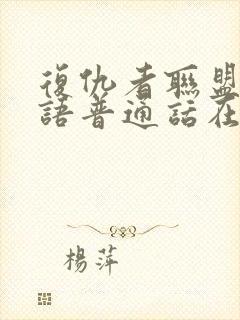 復仇者聯盟
語普通話在
楊萍